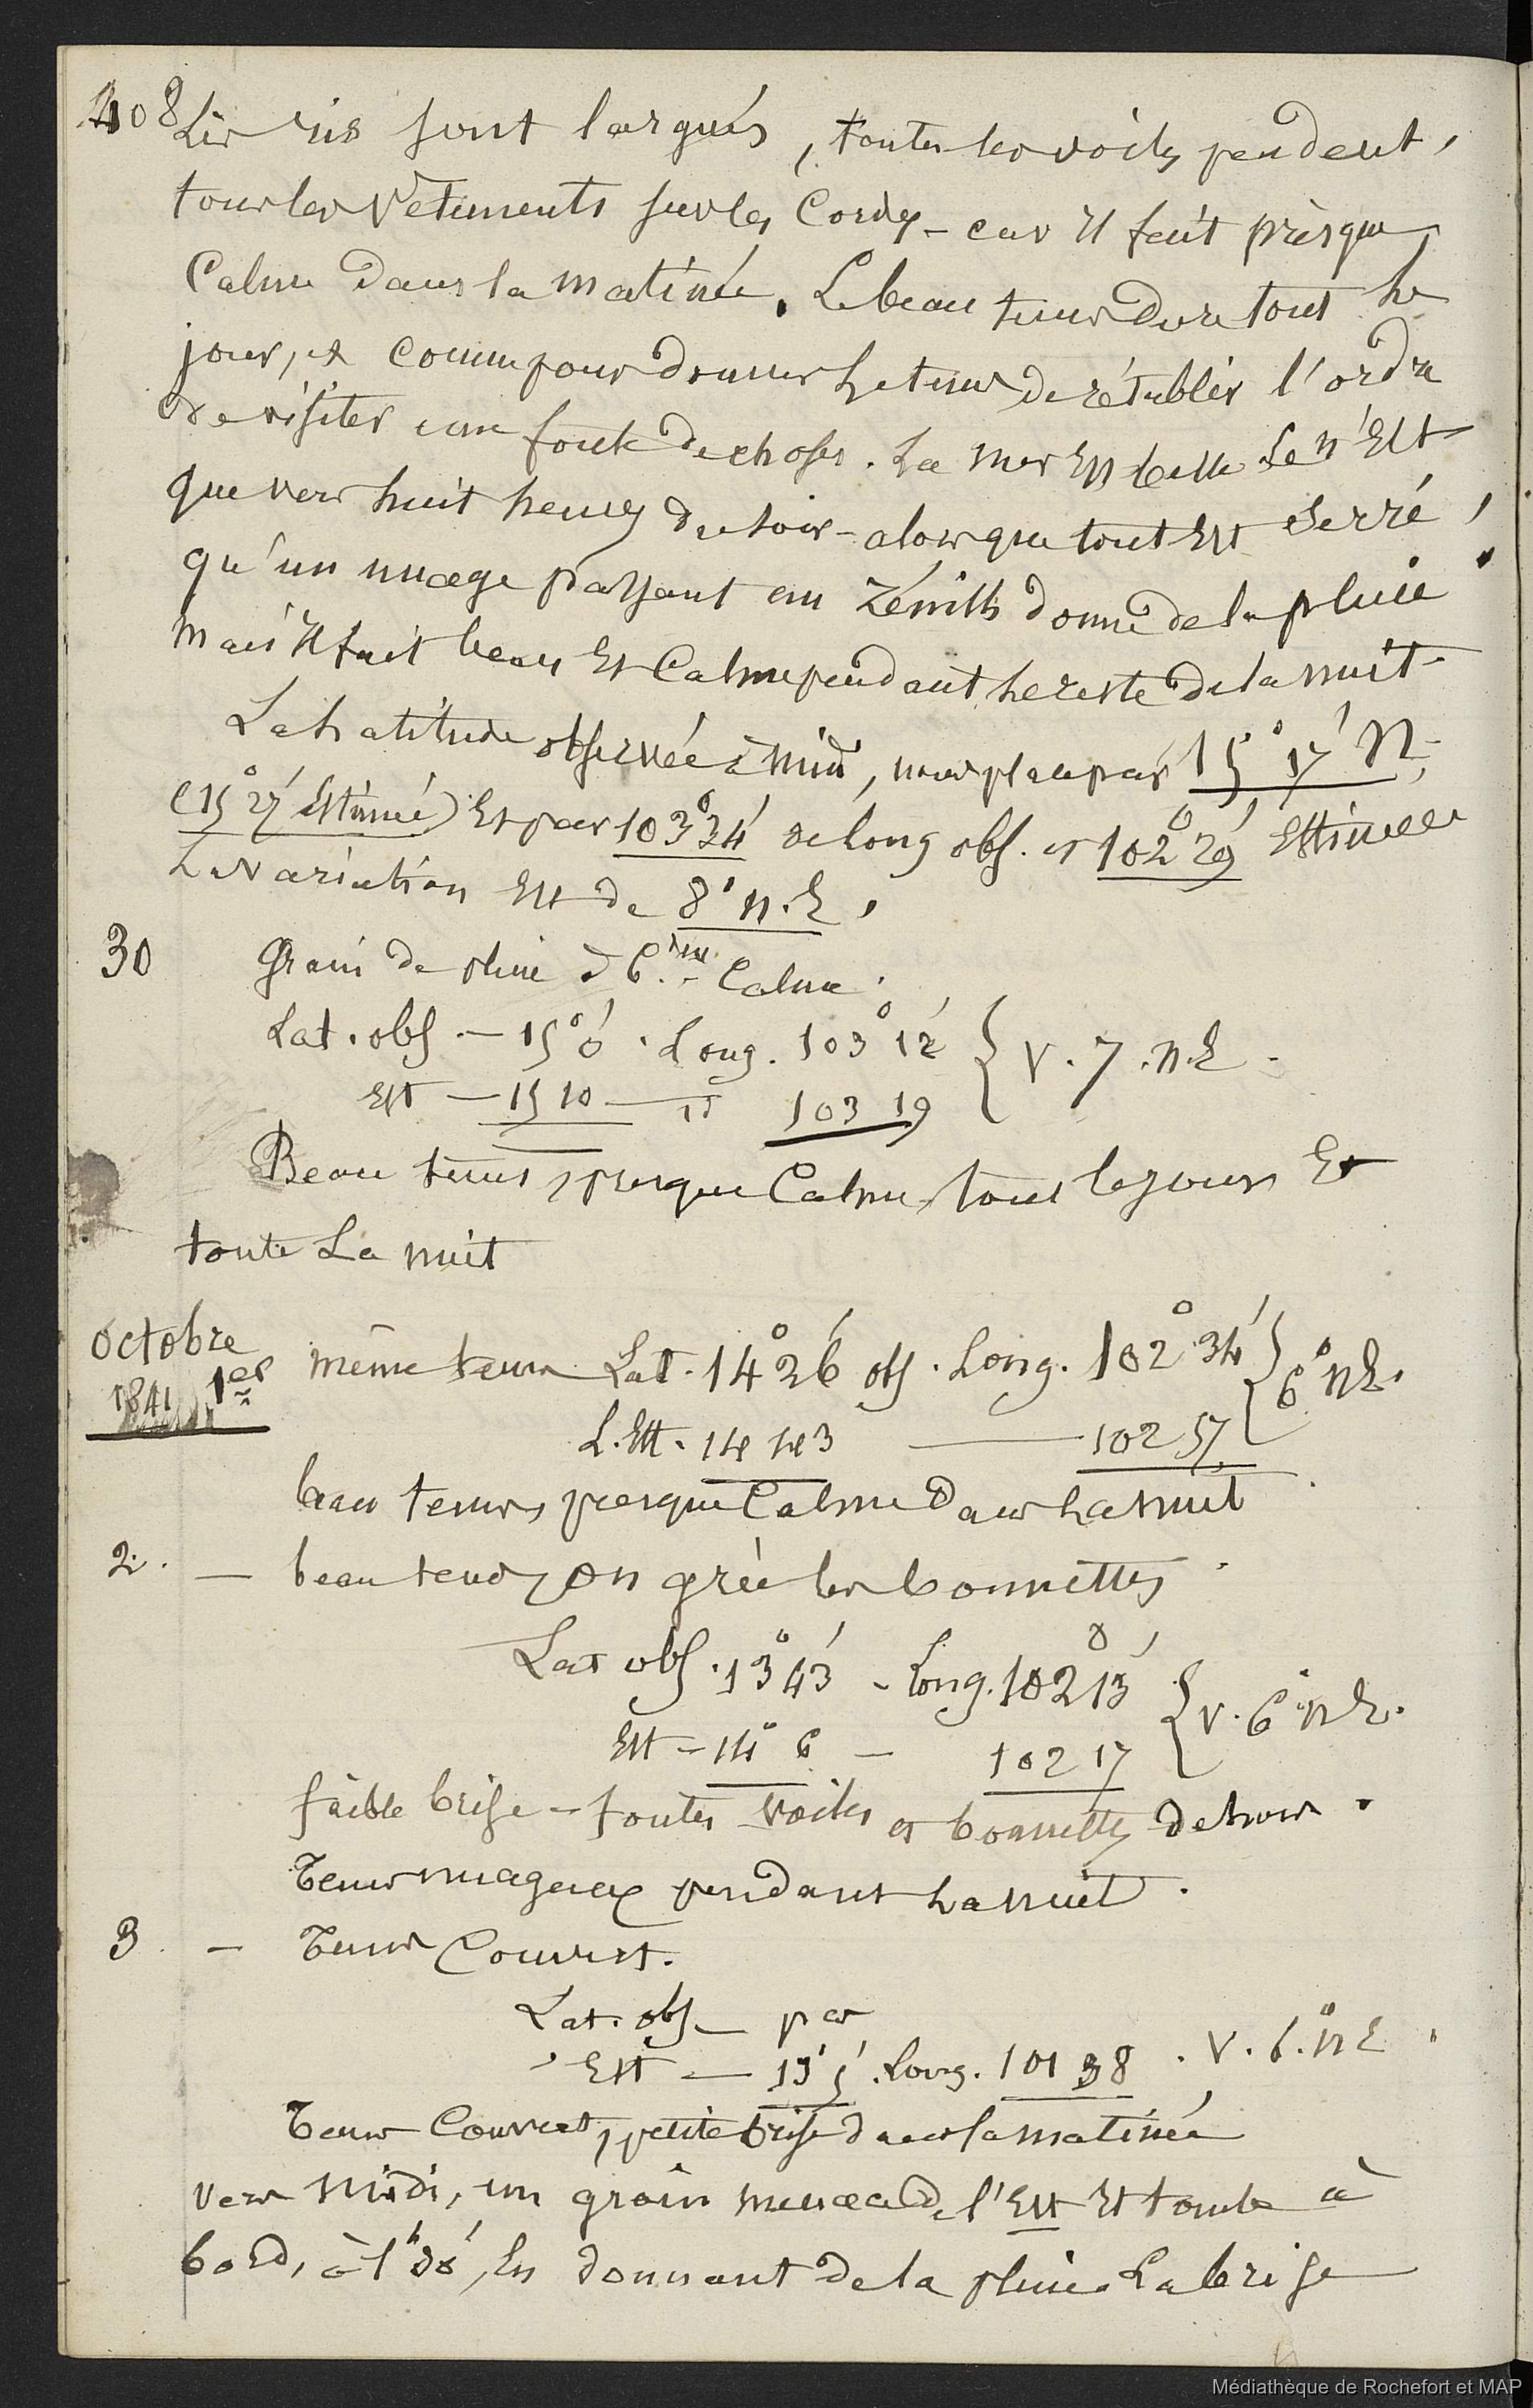 408
Les ris sont largués, toutes les voiles pendent,
tous les vêtements sur les Cordes - car il fait prèsque
Calme dans la matinée. Le beau tems dure tout le
jour, et comme pour donner le tems de rétablir l'ordre
de visiter une foule de choses. La mer est belle. Ce n'Est
que vers huit heures du soir - alors que tout Est Serré,
qu'un nuage passant au Zénith donne de la pluie.
Mais il fait beau Et Calme pendant le reste de la nuit -
La Latitude observée à midi, nous place par 15° 17' N.
(15° 27' Estimée) Et par 103° 34' de long obs. et 102° 29' Estimée
La Variation Est de 8° N.E,
30 Grain de pluie à 6. Calme.
Lat. obs. — 15° 0' . Long. 103° 12' } V. 7. N.E -
Est — 15 10 — " 103 19
Beau tems, presque Calme, tout le jour Et
toute La nuit
Octobre
1841 1er même tems Lat. 14° 26' obs. Long. 102° 34' } 6° N.E.
L. Est. 14 43 — 102 57
beau tems, presque Calme Dans La nuit
2. — beau tems, on grée les bonnettes.
Lat obs. 13° 43' - Long. 102° 13' } V. 6° N.E.
Est - 14° 6 — 102 17
faible brise - toutes voiles et bonnettes Dehors.
Tems nuageux pendant La nuit.
3. — Tems Couvert.
Lat. obs — pas
Est — 13° 5' . Long. 101 38 . V. 6.° N E.
Tems Couvert, petite brise dans la matinée
Vers Midi, un grain menace de l'Est Et tombe à
bord, à 1h 30', En donnant de la pluie. La brise
Médiathèque de Rochefort et MAP